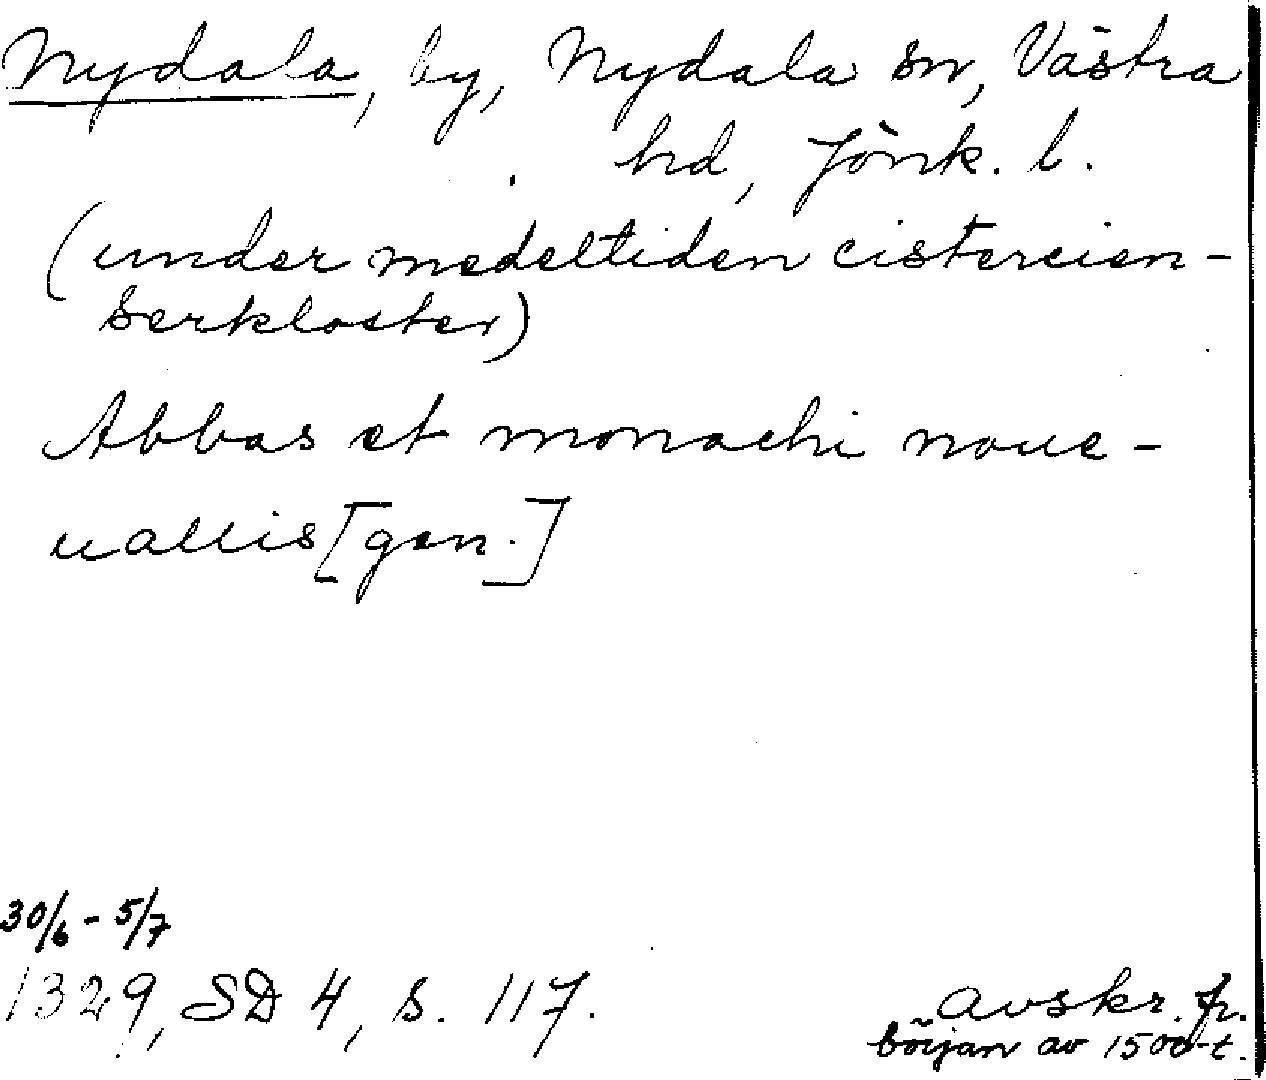 Nydala, by, Nydala sn, Västra
hd, Jönk. l.
(under medeltiden cistercien-
serkloster)
Abbas et monachi noue-
uallis [gen.]
30/6 - 5/7
1329, SD 4, s. 117.
avskr. fr.
början av 1500-t.